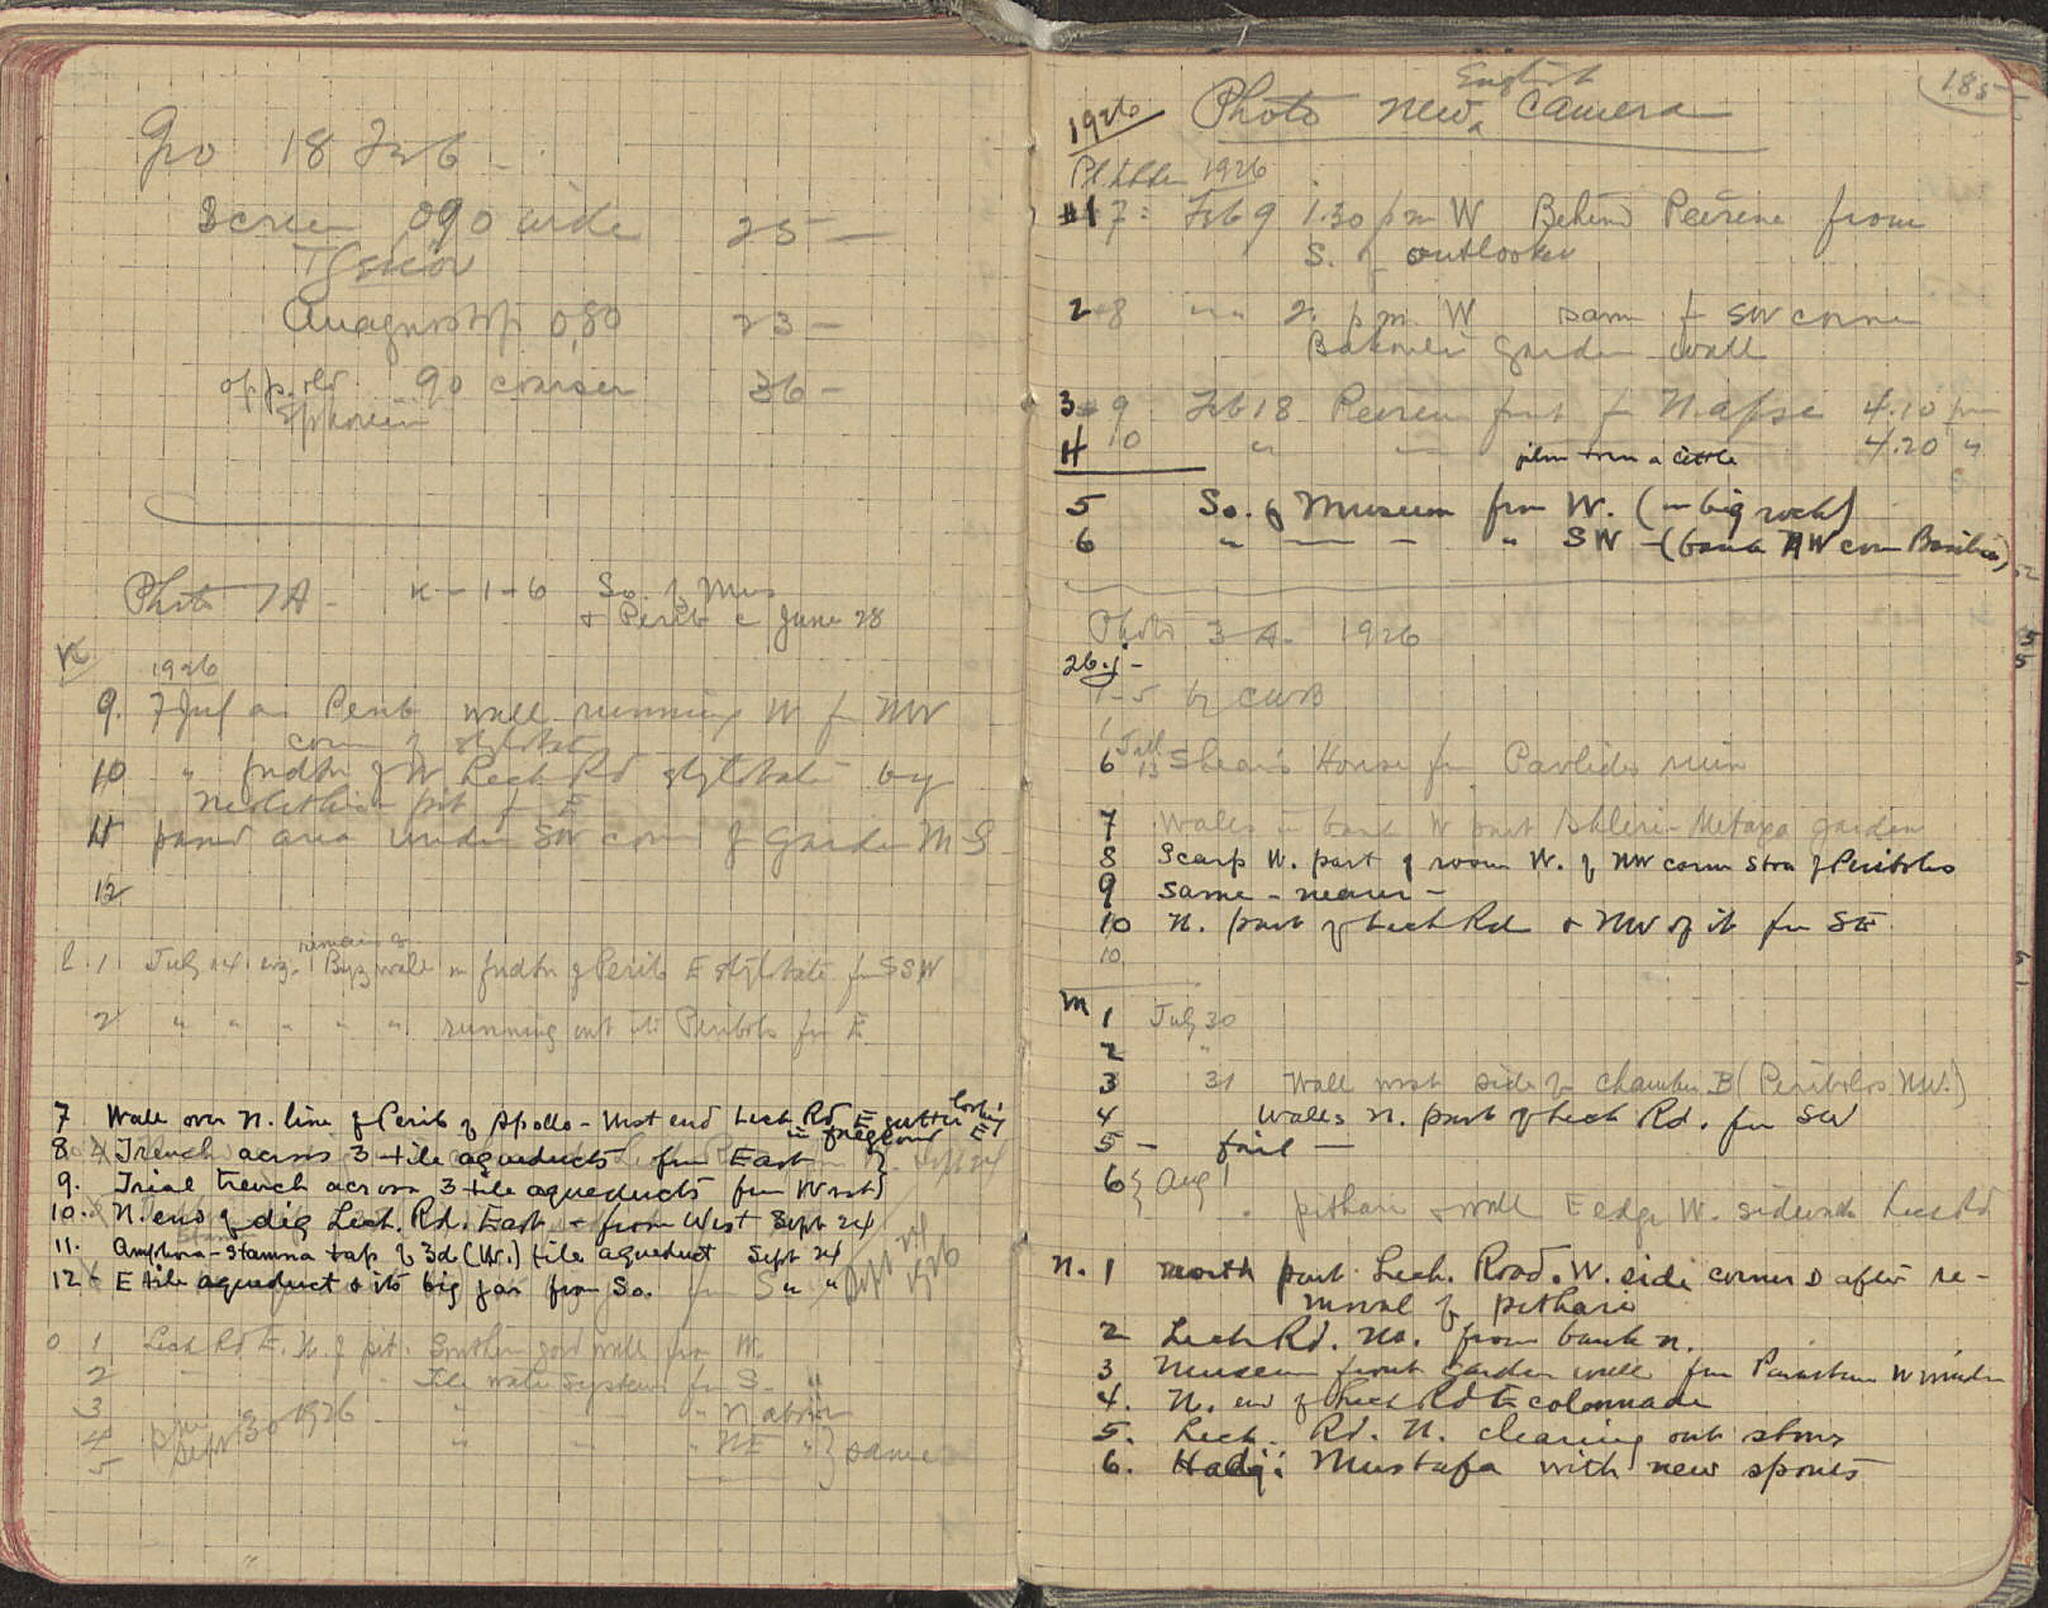 18 Feb
Screen 090 wide 25 —
0,80 23 —
opp. old 90 coarser 36 —
Photo 1A - K - 1 - 6 So. of Mus
+ Perib c June 28
K
1926
9. 7 Jul Perib wall running W fr NW
corn of stylobate
10 " fndtn of W Lech Rd stylobate by
pit fr E
11 paved area under SW corn of Garden M S
12
l. 1 July 24 remains of Byz wall on fndtn of Perib E stylobate fr SSW
2 " " " " " running out into Peribolos fr E
7 Wall over N. line of Perib of Apollo - West end Lech Rd E gutter looking E
in foreground
8 Trench across 3 tile aqueducts from East
9. Trial trench across 3 tile aqueducts from West
10. N. end of dig Lech. Rd. East - from West Sept 24
11. Amphora-Stamna tap of 3d (W.) tile aqueduct Sept 24
12 E tile aqueduct & its big jar from So. " "
Sept 24 1926
o 1 Lech Rd E. N. of pit. Southern wall from W.
2 Tile water systems fr S. "
3 " " N
4 " " NE " } same
5
Sept 30 1926
185
1926 Photo New English Camera
1926
#1 7: Feb 9 1.30 pm W Behind Peirene from
S. of outlooker
2 8 " " 2. pm. W same fr SW corner
garden wall
3 9 Feb 18 Peirene front fr N. apse 4.10 pm
4 10 " — a little 4.20 "
5 So. of Museum from W. (on big rock)
6 " — - " SW - (bank NW corn Basilica)
Photo 3-A. 1926
26.j -
1-5 by CWB
6 Jul 13 Shear's House fr Pavlides ruin
7 Walls in bank W part - Metaxa garden
8 Scarp W. part of room W. of NW corner Stoa of Peribolos
9 same - nearer -
10 N. part of Lech Rd & NW of it fr SE
10
M 1 July 30
2 "
3 31 Wall west side of chamber B (Peribolos NW.)
4 Walls N. part of Lech Rd. fr SW
5 - fail —
6 { Aug 1
" pithari & wall E edge W. sidewalk Lech Rd
N. 1 north part Lech. Road. W. side corner D after re-
moval of pithari
2 Lech Rd. No. from bank N.
3 Museum front garden wall from W window
4. N. end of Lech Rd E colonnade
5. Lech. Rd. N. clearing out stones
6. Hadji Mustafa with new spouts